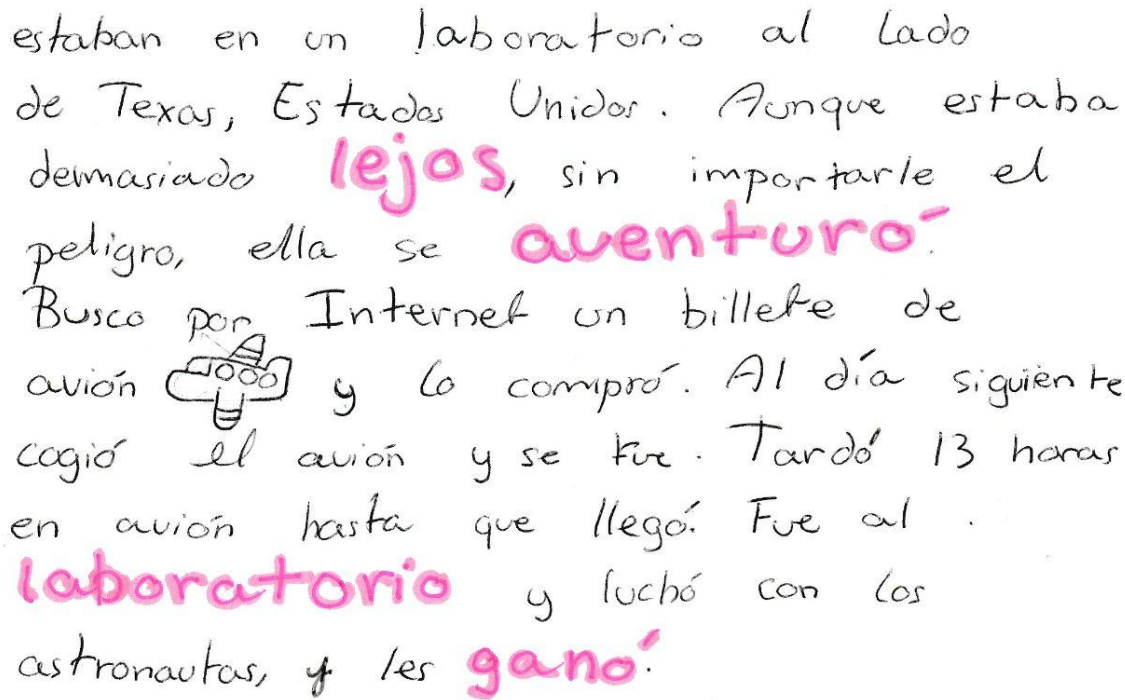 estaban en un laboratorio al lado
de Texas, Estados Unidos. Aunque estaba
demasiado lejos, sin importarle el
peligro, ella se aventuró.
Busco por Internet un billete de
avión y lo compró. Al día siguiente
cogió el avión y se fue. Tardó 13 horas
en avión hasta que llegó. Fue al
laboratorio y luchó con los
astronautas, y les ganó.